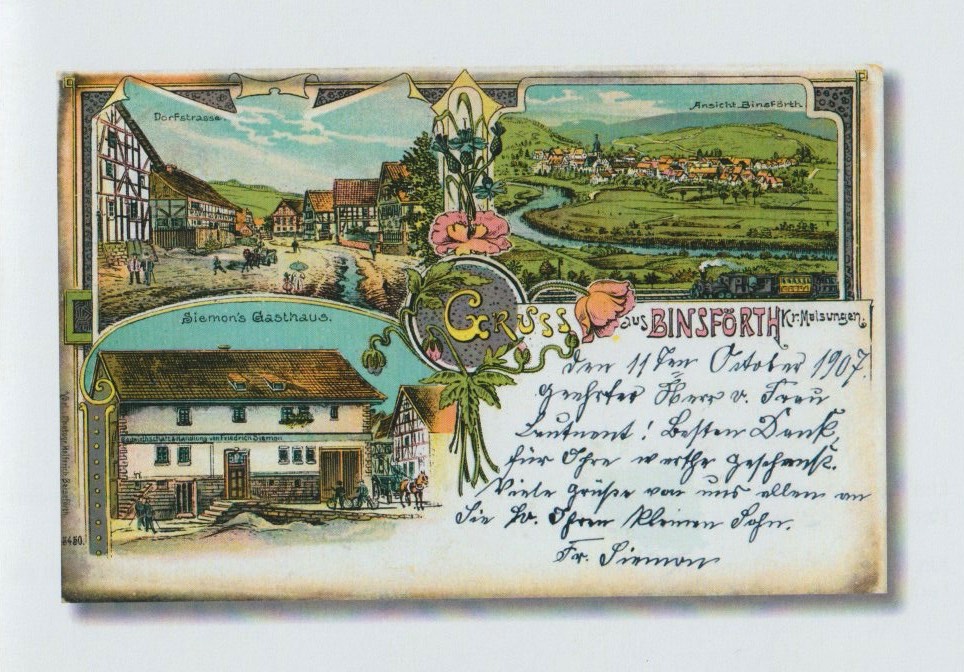 Dorfstrasse
Ansicht Binsförth.
Siemon's Gasthaus.
GRUSS aus BINSFÖRTH Kr. Melsungen.
den 11ten October 1907.
Geehrter Herr v. Frau
Leutnent! Besten Dank,
für Ihre werthe geschenk.
Viele Grüße von uns allem an
Sie Ihren kleinen Sohn.
Fr. Siemon
Handlung von Friedrich Siemon
8480.